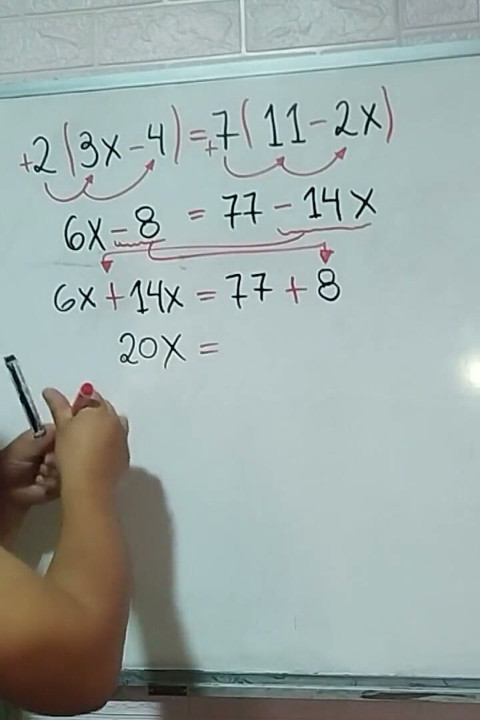 +2(3x-4)=+7(11-2x)
6x-8 = 77-14x
6x+14x=77+8
20x =